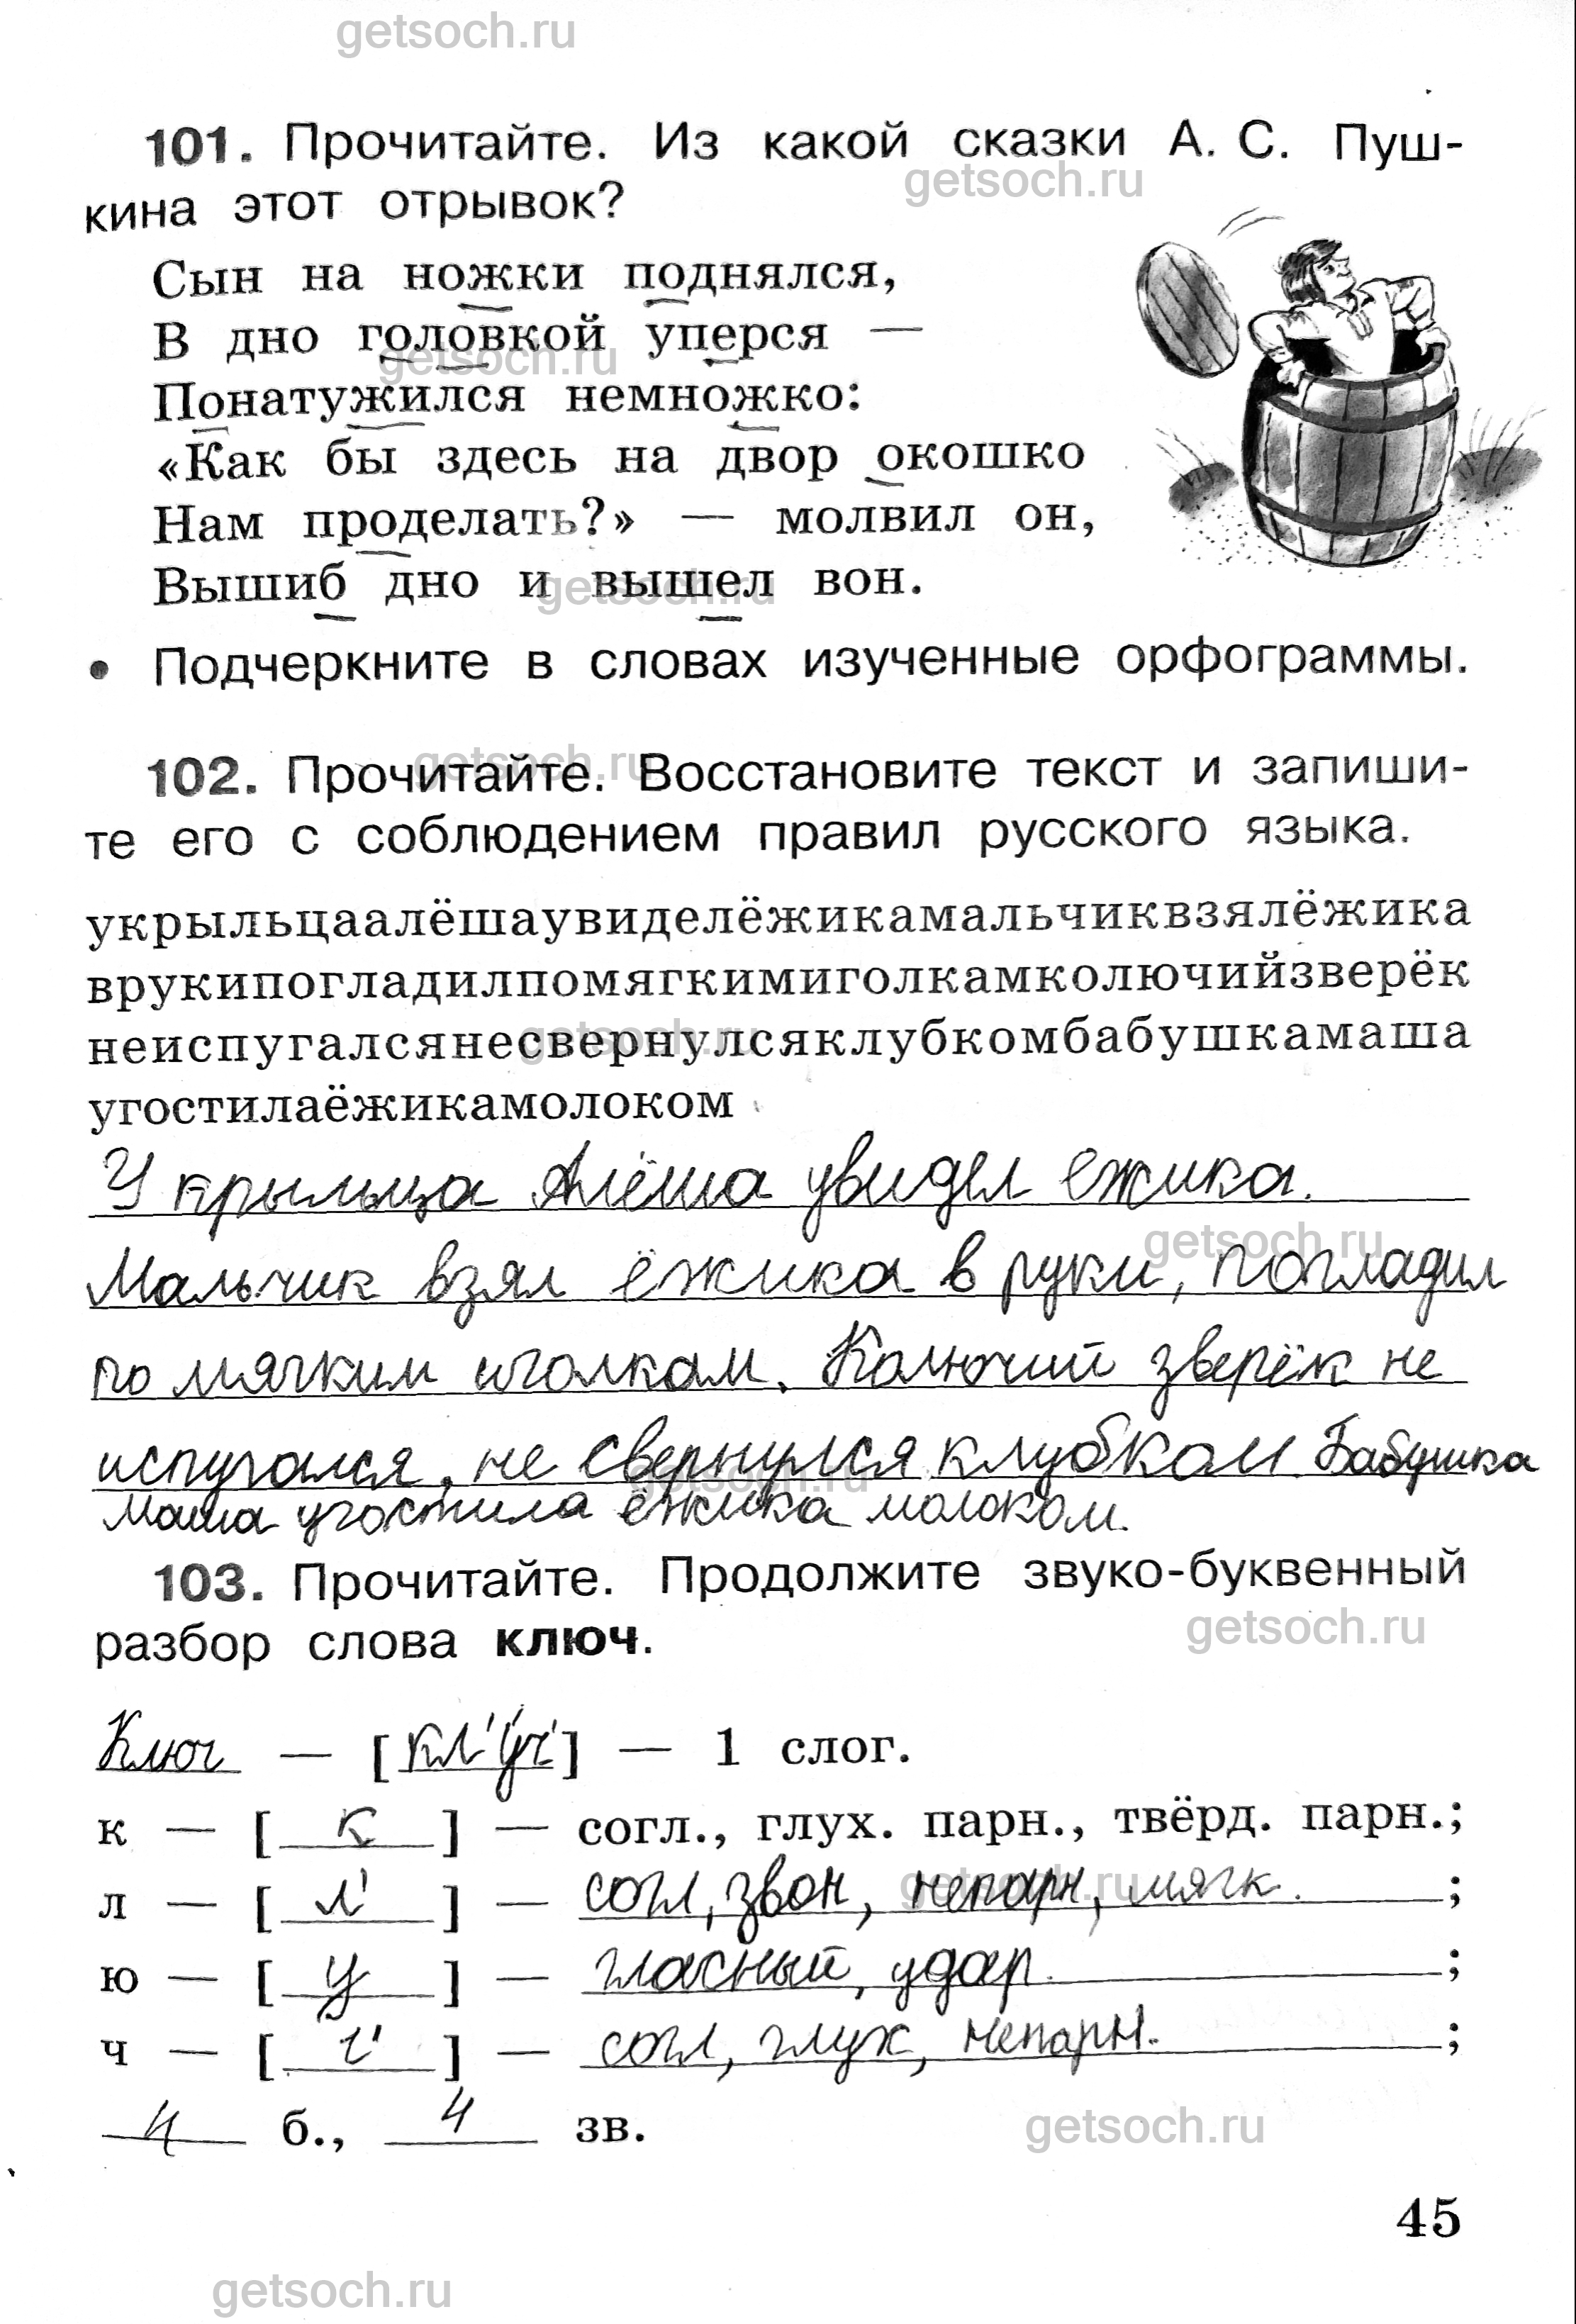 getsoch.ru
101. Прочитайте. Из какой сказки А. С. Пуш-
getsoch.ru
кина этот отрывок?
Сын на ножки поднялся,
В дно головкой уперся —
getsoch.ru
Понатужился немножко:
«Как бы здесь на двор окошко
Нам проделать?» — молвил он,
Вышиб дно и вышел вон.
getsoch.ru
• Подчеркните в словах изученные орфограммы.
getsoch.ru
102. Прочитайте. Восстановите текст и запиши-
те его с соблюдением правил русского языка.
укрыльцаалёшаувиделёжикамальчиквзялёжика
врукипогладилпомягкимиголкамколючийзверёк
неиспугалсянесвернулсяклубкомбабушкамаша
getsoch.ru
угостилаёжикамолоком
У крыльца Алёша увидел ежика.
getsoch.ru
Мальчик взял ёжика в руки, погладил
по мягким иголкам. Колючий зверёк не
испугался, не свернулся клубком. Бабушка
getsoch.ru
Маша угостила ёжика молоком.
103. Прочитайте. Продолжите звуко-буквенный
getsoch.ru
разбор слова ключ.
Ключ — [кл'у́ч'] — 1 слог.
к — [к] — согл., глух. парн., твёрд. парн.;
getsoch.ru
л — [л'] — согл, звон, непарн, мягк. ;
ю — [у] — гласный, удар. ;
ч — [ч'] — согл, глух, непарн. ;
4 б., 4 зв.
getsoch.ru
45
getsoch.ru